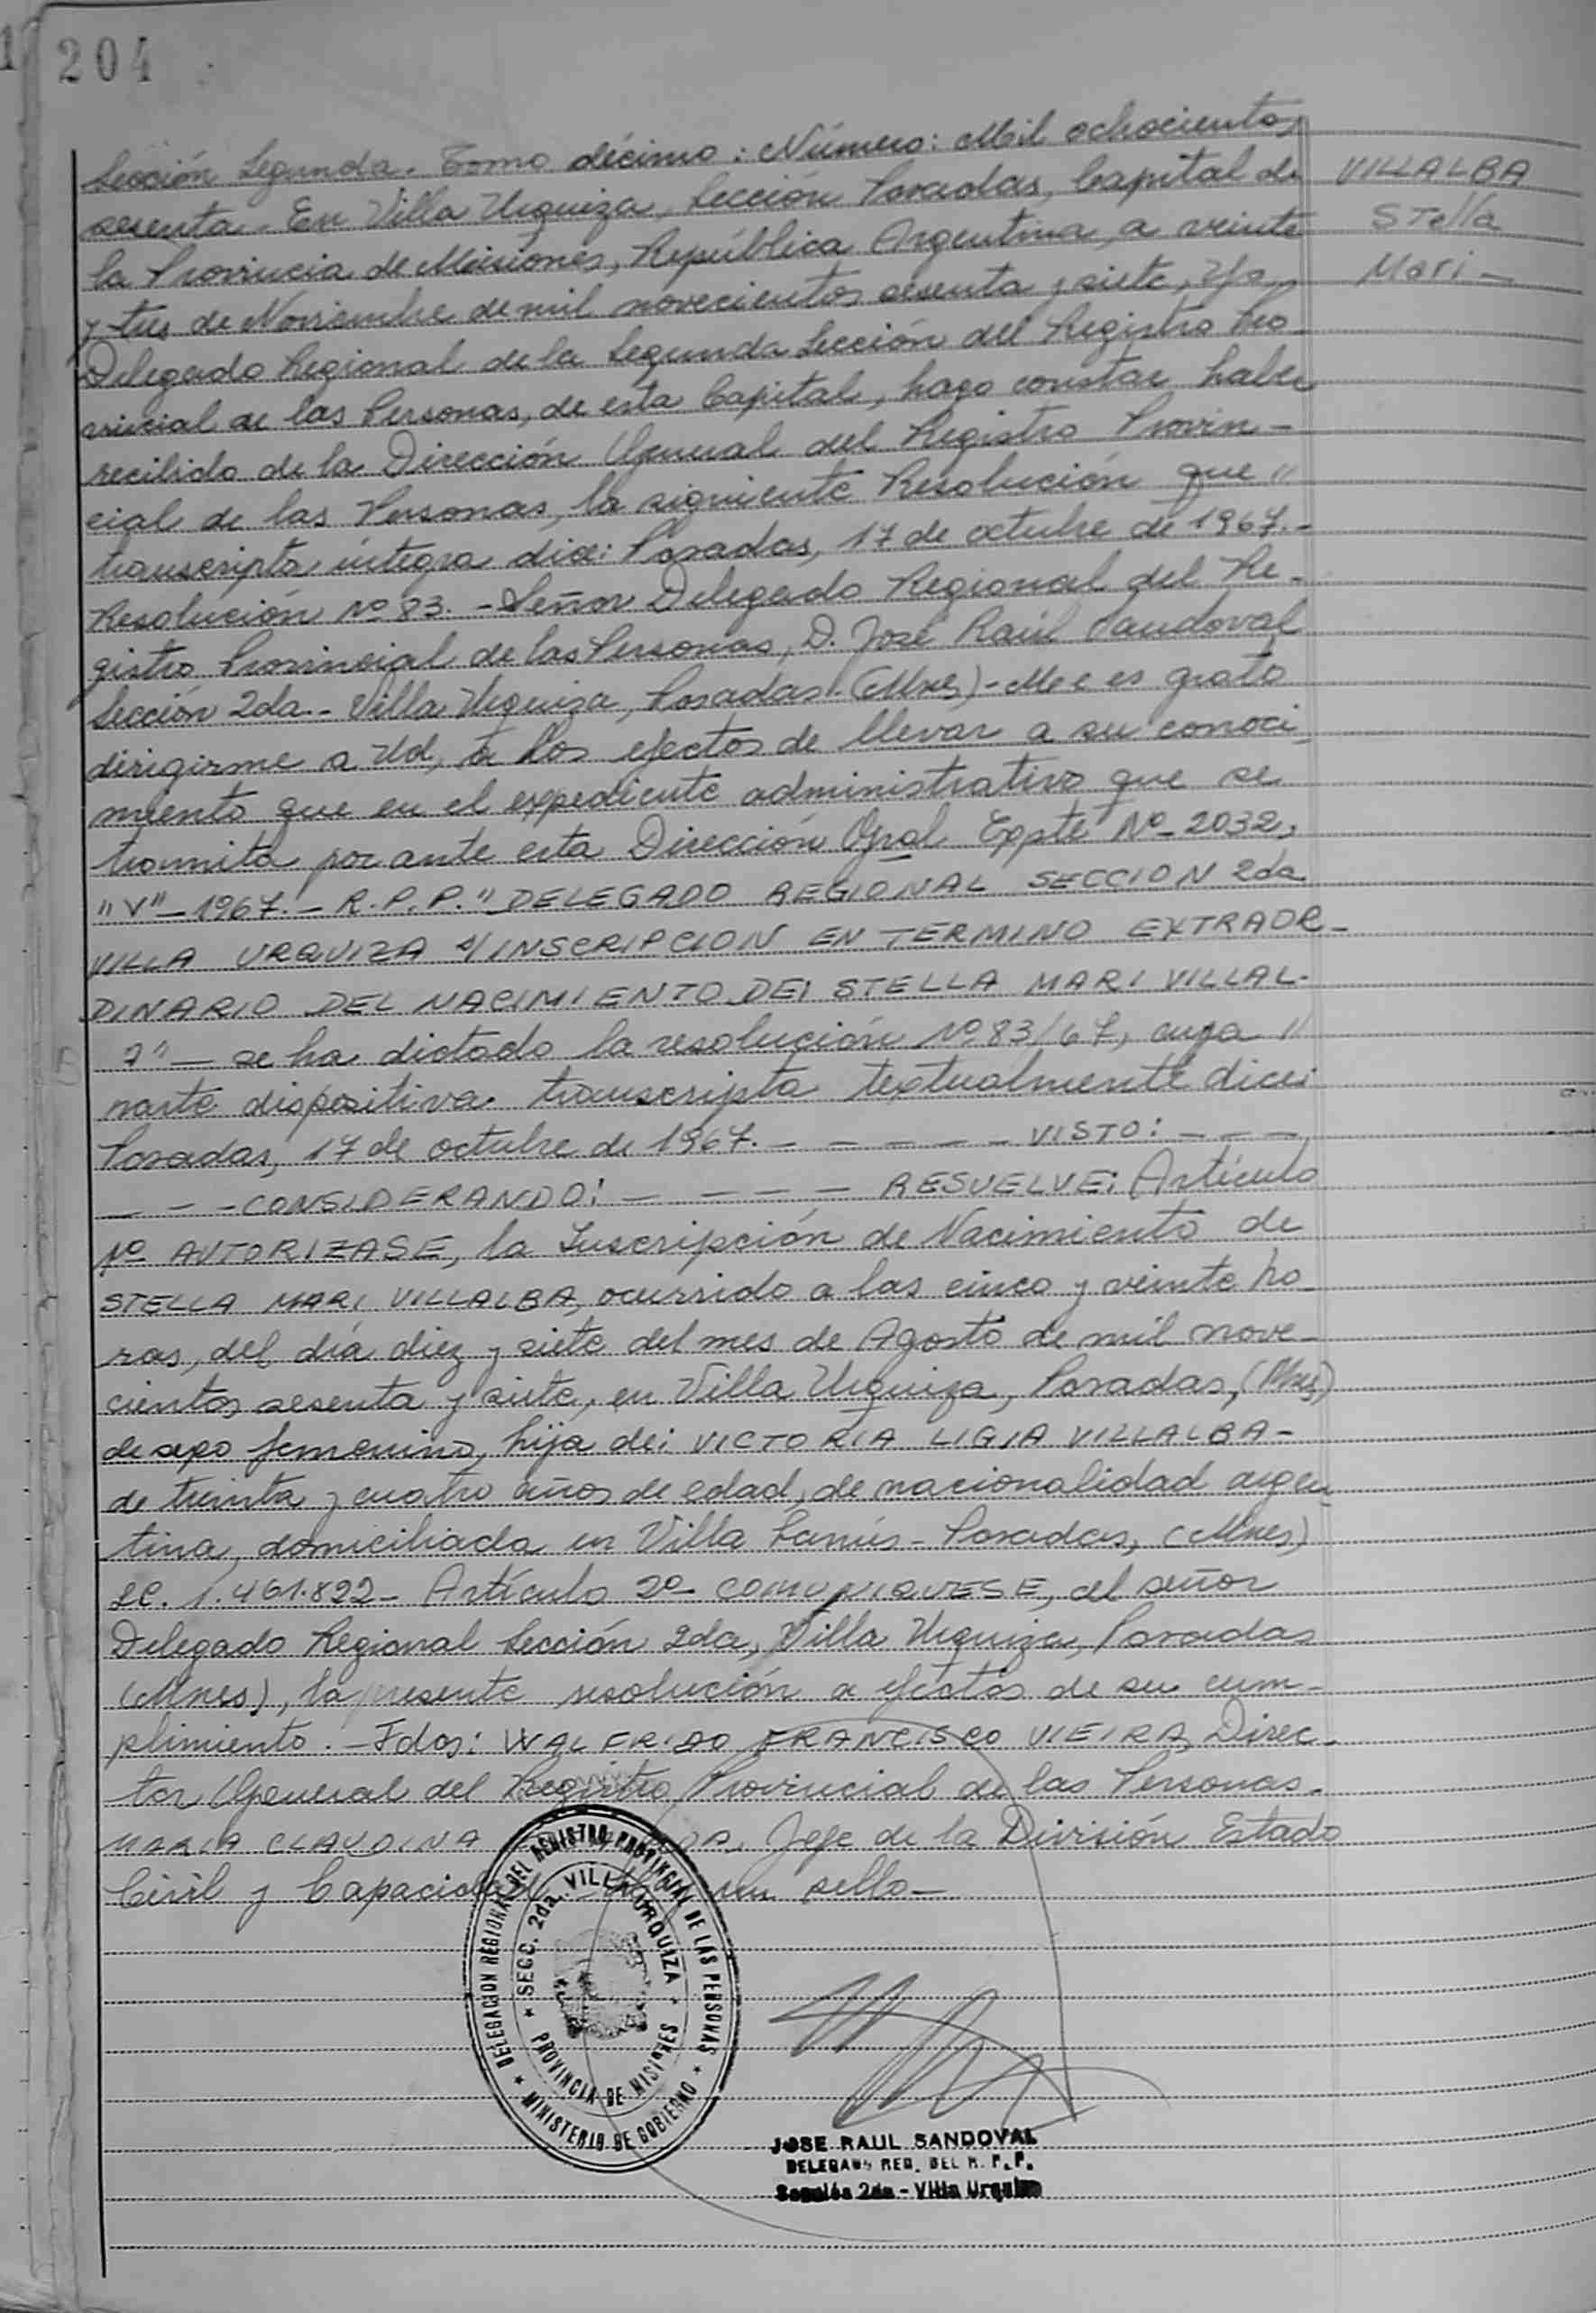 204
Sección Segunda. Tomo décimo: Número: Mil ochocientos
sesenta. En Villa Urquiza, Sección Posadas, Capital de
la Provincia de Misiones, República Argentina, a veinte
y tres de Noviembre de mil novecientos sesenta y siete, Yo,
Delegado Regional de la Segunda Sección del Registro Pro-
vincial de las Personas, de esta Capital, hago constar haber
recibido de la Dirección General del Registro Provin-
cial de las Personas, la siguiente Resolución que "
transcripta íntegra dice: Posadas, 17 de octubre de 1967.-
Resolución Nº 83. - Señor Delegado Regional del Re-
gistro Provincial de las Personas, D. José Raúl Sandoval
Sección 2da.- Villa Urquiza, Posadas. (Mnes) - Me es grato
dirigirme a Ud, a los efectos de llevar a su conoci-
miento que en el expediente administrativo que se
tramita por ante esta Dirección Gral Expte Nº 2032,
"V" - 1967. - R.P.P. " DELEGADO REGIONAL SECCION 2da
VILLA URQUIZA S/INSCRIPCION EN TERMINO EXTRAOR-
DINARIO DEL NACIMIENTO DE: STELLA MARI VILLAL-
" — se ha dictado la resolución Nº 83/67, cuya "
parte dispositiva transcripta textualmente dice:
Posadas, 17 de octubre de 1967. - - - - - - VISTO: - - -
- - - CONSIDERANDO: - - - - - RESUELVE: Artículo
1º AUTORIZASE, la Inscripción de Nacimiento de
STELLA MARI VILLALBA, ocurrido a las cinco y veinte ho-
ras, del día diez y siete del mes de Agosto de mil nove-
cientos sesenta y siete, en Villa Urquiza, Posadas, (Mnes)
de sexo femenino, hija de: VICTORIA LIGIA VILLALBA -
de treinta y cuatro años de edad, de nacionalidad argen-
tina, domiciliada en Villa Lanús - Posadas, (Mnes)
LC. 1.461.822 - Artículo 2º COMUNIQUESE, al señor
Delegado Regional Sección 2da, Villa Urquiza, Posadas
(Mnes), la presente resolución a efectos de su cum-
plimiento. - Fdos: WALFRIDO FRANCISCO VIEIRA, Direc-
tor General del Registro Provincial de las Personas.
MARIA CLAUDINA Jefe de la División Estado
Civil y Capacidad - un sello -
VILLALBA
Stella
Mari -
DELEGACION REGIONAL DEL REGISTRO PROVINCIAL DE LAS PERSONAS
* SECC. 2da. VILLA URQUIZA *
PROVINCIA DE MISIONES
* MINISTERIO DE GOBIERNO *
JOSE RAUL SANDOVAL
DELEGADO REG. DEL R. P. P.
Sección 2da - Villa Urquiza